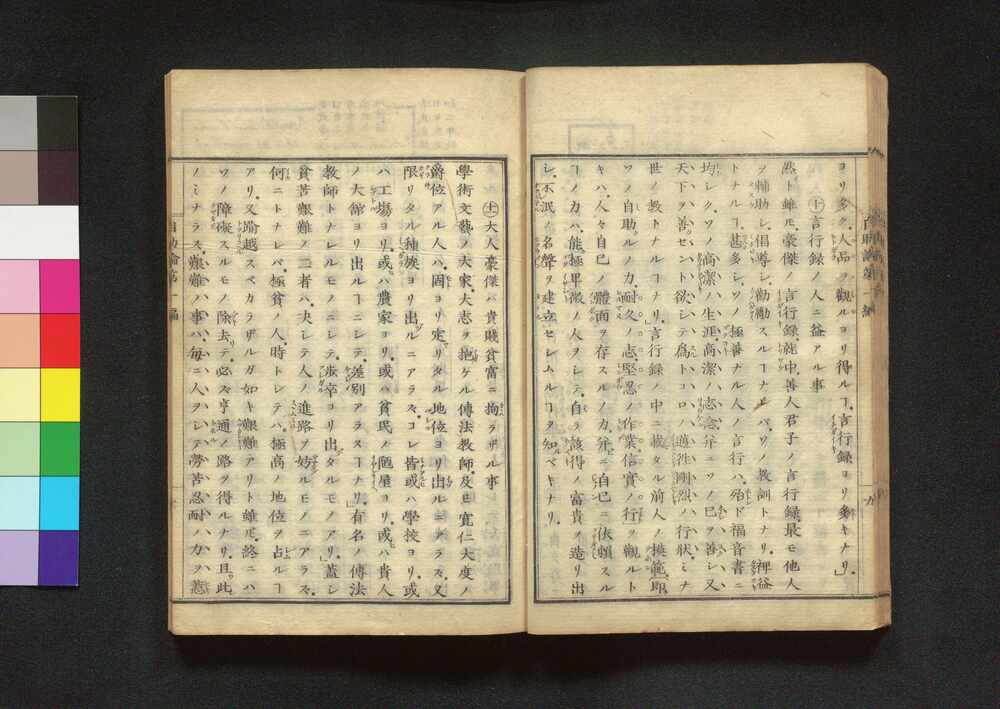 ヨリ多ク、人品ヲ觀ルヨリ得ルヿ、言行録ヨリ多キナリ」
十 言行録ノ人ニ益アル事
然ト雖モ、豪傑ノ言行録、就中善人君子ノ言行録、最モ他人
ヲ輔助シ、倡導シ、勸勵スルヿナ ソノ教訓トナリ、裨益
トナルヿ甚多シ、ソノ極善ナル人ノ言行ハ、殆ド福音書ニ
均シク、ソノ高潔ノ生涯、高潔ノ志念、并ニソノ己ヲ善シ又
天下ヲ善セント欲シテ、爲トコロノ 剛烈ノ行狀、ミナ
世ノ教トナルヿナリ」言行録ノ中ニ載タル前人ノ 範、即
ソノ自助ルノ力、耐久ノ志、堅忍ノ作業、信實ノ行ヲ觀ルト
キハ、人々自己ノ體面ヲ存スルノ力、并ニ自己ニ依賴スル
ノ力ハ、能極卑微ノ人ヲシテ、自ラ該得ノ富貴ヲ造リ出
シ、不泯ノ名聲ヲ建立セシムルヿヲ知ベキナリ、
自助論第一編
九
十一 大人豪傑ハ貴賤貧富ニ拘ラザル事
學術文藝ノ大家、大志ヲ抱ケル傳法教師、及ビ寛仁大度ノ
爵位アル人ハ、固ヨリ定リタル地位ヨリ出ルニアラズ、又
限リタル種族ヨリ出ルニアラズ、コレ皆或ハ學校ヨリ、或
ハ工塲ヨリ、或ハ農家ヨリ、或ハ貧民ノ陋屋ヨリ、或ハ貴人
ノ大館ヨリ出ルヿニシテ、差別アラズヿナリ」有名ノ傳法
教師トナレルモノニシテ、歩卒ヨリ出タルモノアリ」蓋シ
貧苦艱難ノ二者ハ、决シテ人ノ進路ヲ妨ルモノニアラズ、
何ニトナレバ、極貧ノ人、時トシテハ極高ノ地位ヲ占ムルヿ
アリ、又踰越スベカラザルガ如キ艱難アリト雖モ、終ニハ
ソノ障礙スルモノヲ除去テ、必ズ亨通ノ路ヲ得ルナリ、且此
ノミナラズ、艱難ノ事ハ、毎ニ人ヲシテ勞苦忍耐ノ力ヲ惹
自助論第一編